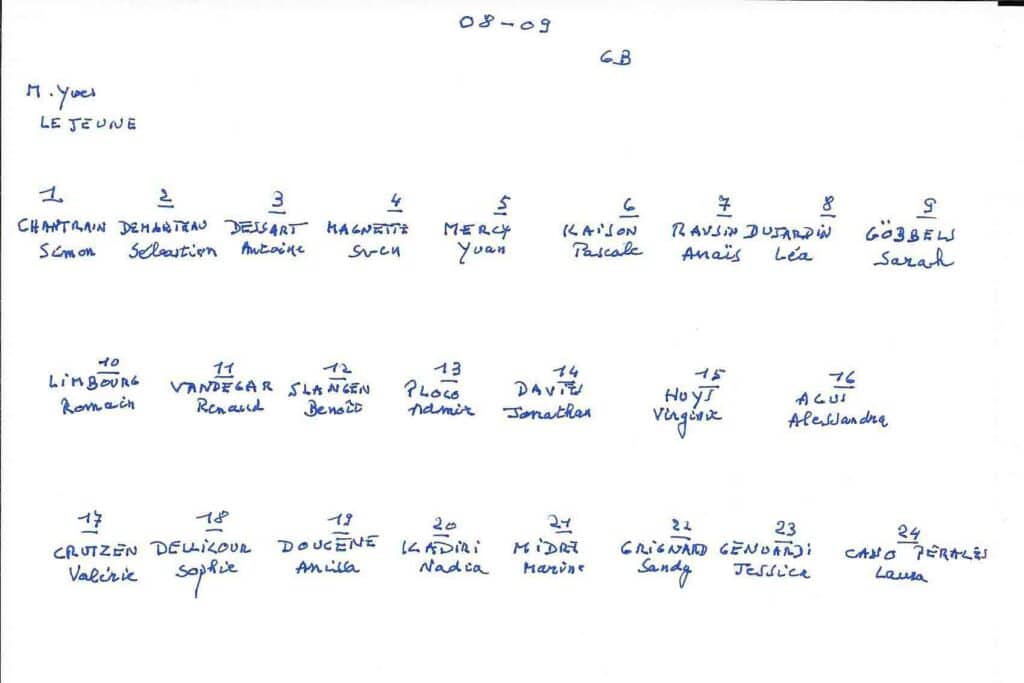 08-09
6B
M. Yves
LEJEUNE
1 2 3 4 5 6 7 8 9
CHANTRAIN DEMARTEAU DESSART MAGNETTE MERCY KAISON RAUSIN DUJARDIN GÖBBELS
Simon Sébastien Antoine Sven Yvan Pascale Anaïs Léa Sarah
10 11 12 13 14 15 16
LIMBOURG VANDEGAR SLANGEN PLOCO DAVIES HUYS AGUS
Romain Renaud Benoît Admir Jonathan Virginie Alessandra
17 18 19 20 21 22 23 24
CRUTZEN DELLICOUR DOUCENE KADIRI MIDRE GRIGNARD GENUARDI CANO PERALES
Valérie Sophie Anissa Nadia Marine Sandy Jessica Laura